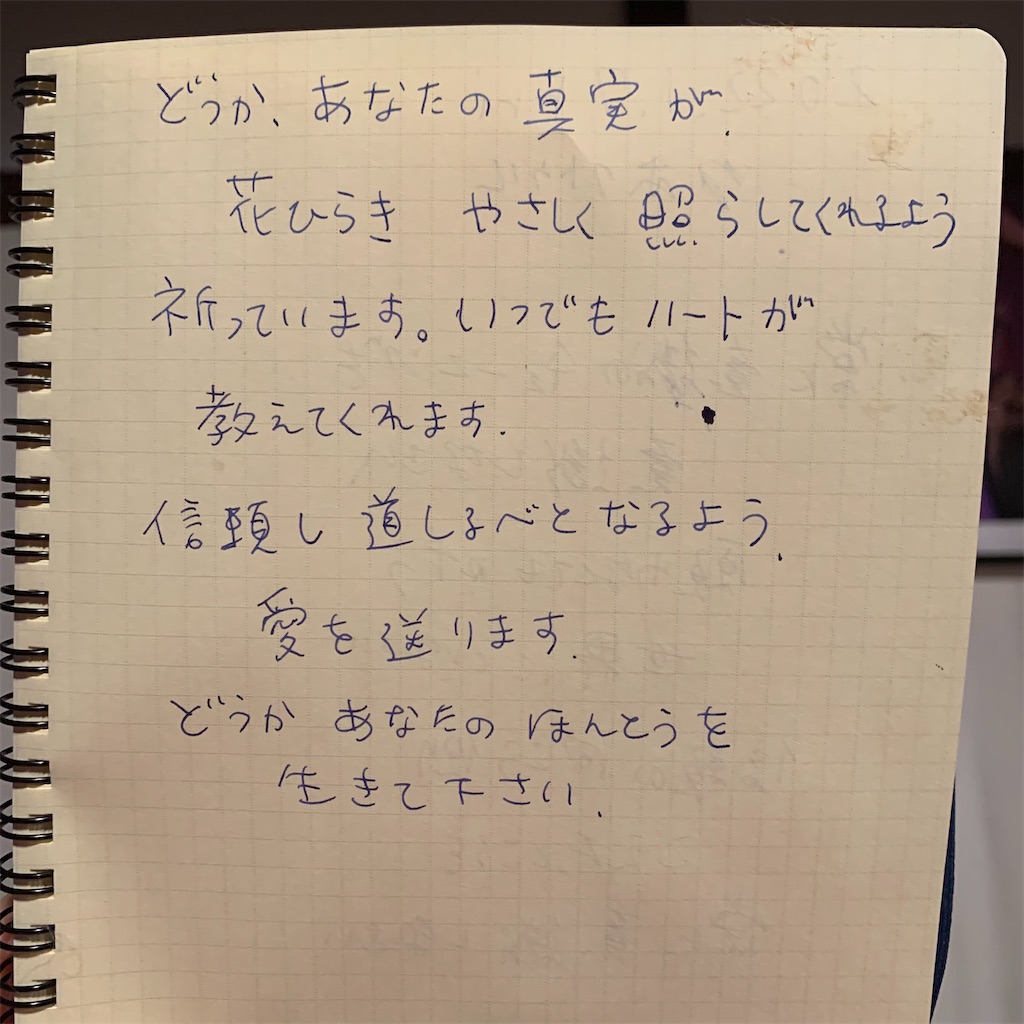 どうか、あなたの真実が、
花ひらき やさしく 照らしてくれるよう
祈っています。いつでもハートが
教えてくれます.
信頼し 道しるべとなるよう、
愛を送ります.
どうか あなたの ほんとうを
生きて下さい.